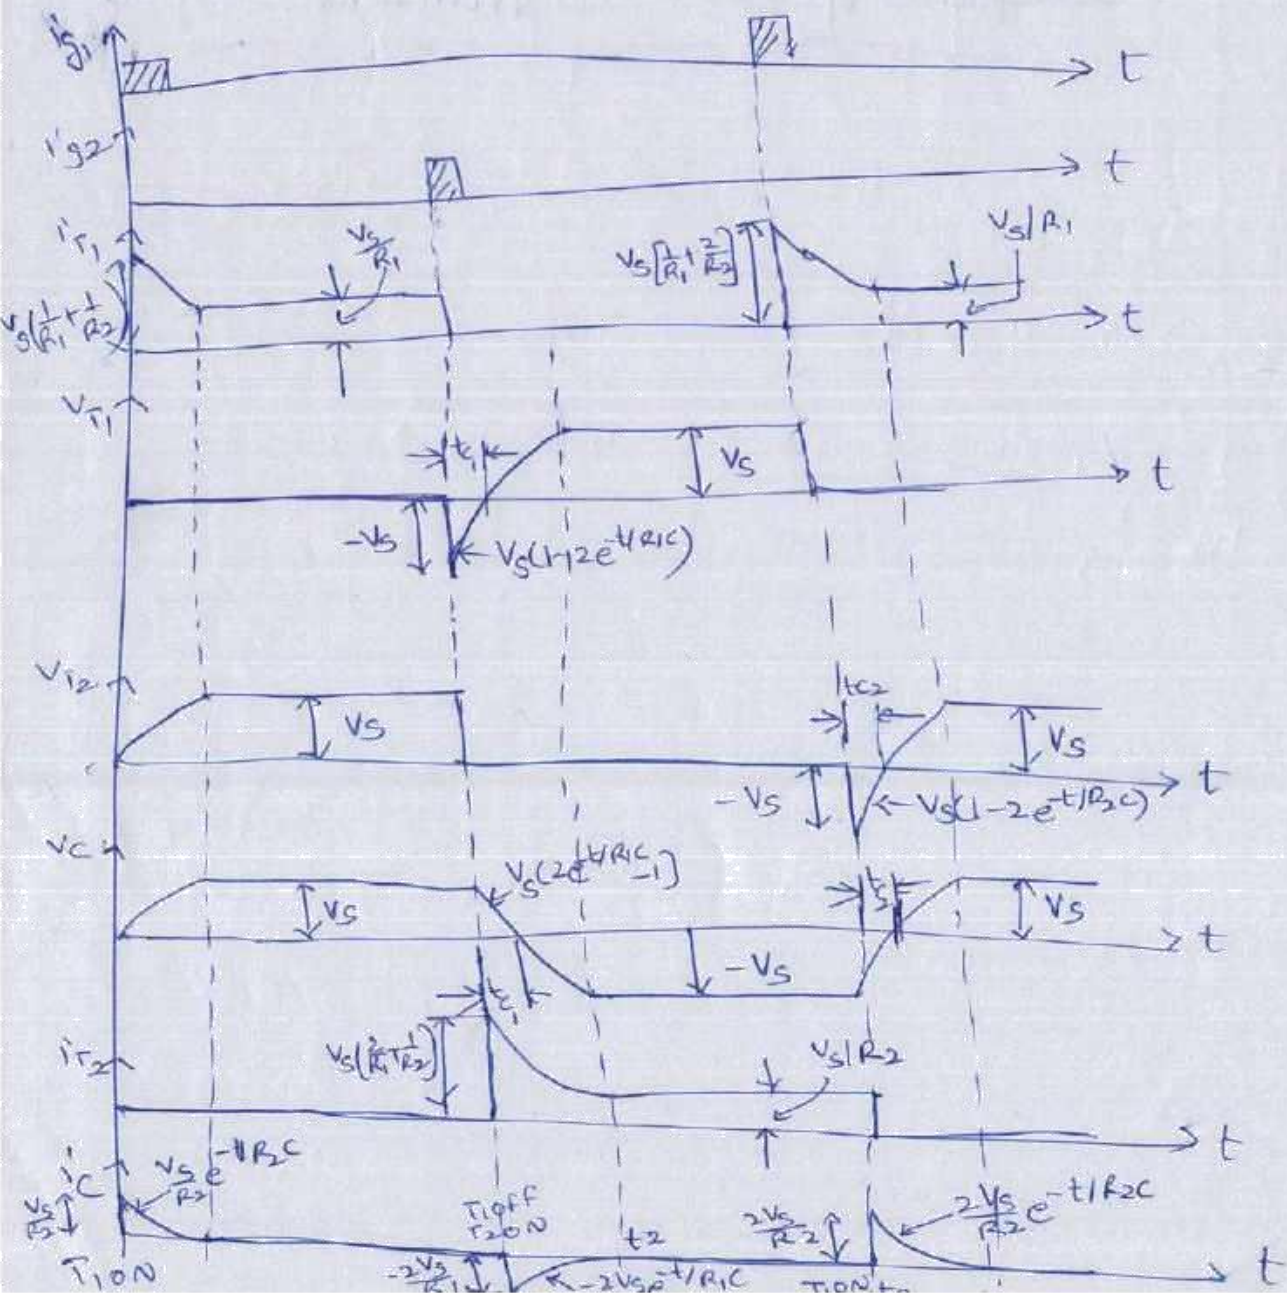 ig1
t
ig2
t
iT1
Vs/R1
Vs[1/R1+2/R2]
Vs|R1
Vs(1/R1+1/R2
t
VT1
tc1
Vs
t
-Vs
Vs(1-2e^-t/R1C)
VT2
Vs
tc2
Vs
-Vs
Vs(1-2e^-t/R2C)
t
VC
Vs(2e^-t/R1C-1]
Vs
Vs
-Vs
t
tc1
iT2
Vs(2/R1+1/R2)
Vs|R2
t
iC
Vs/R2 e^-t/R2C
Vs/R2
T1OFF
T2ON
t2
2Vs/R2
2Vs/R2 e^-t/R2C
t
T1ON
-2Vs/R1
-2Vse^-t/R1C
T1ON